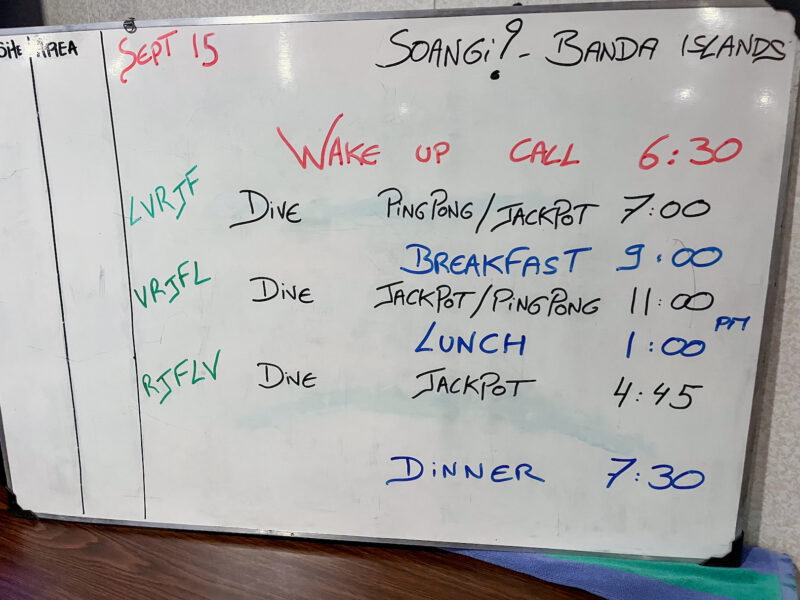 SITE AREA
SEPT 15 SOANGi? - BANDA ISLANDS
WAKE UP CALL 6:30
LVRJF DiVE PiNGPONG/JACKPOT 7:00
BREAKFAST 9:00
VRJFL DiVE JACKPOT/PiNGPONG 11:00
LUNCH 1:00 PM
RJFLV DiVE JACKPOT 4:45
DiNNER 7:30